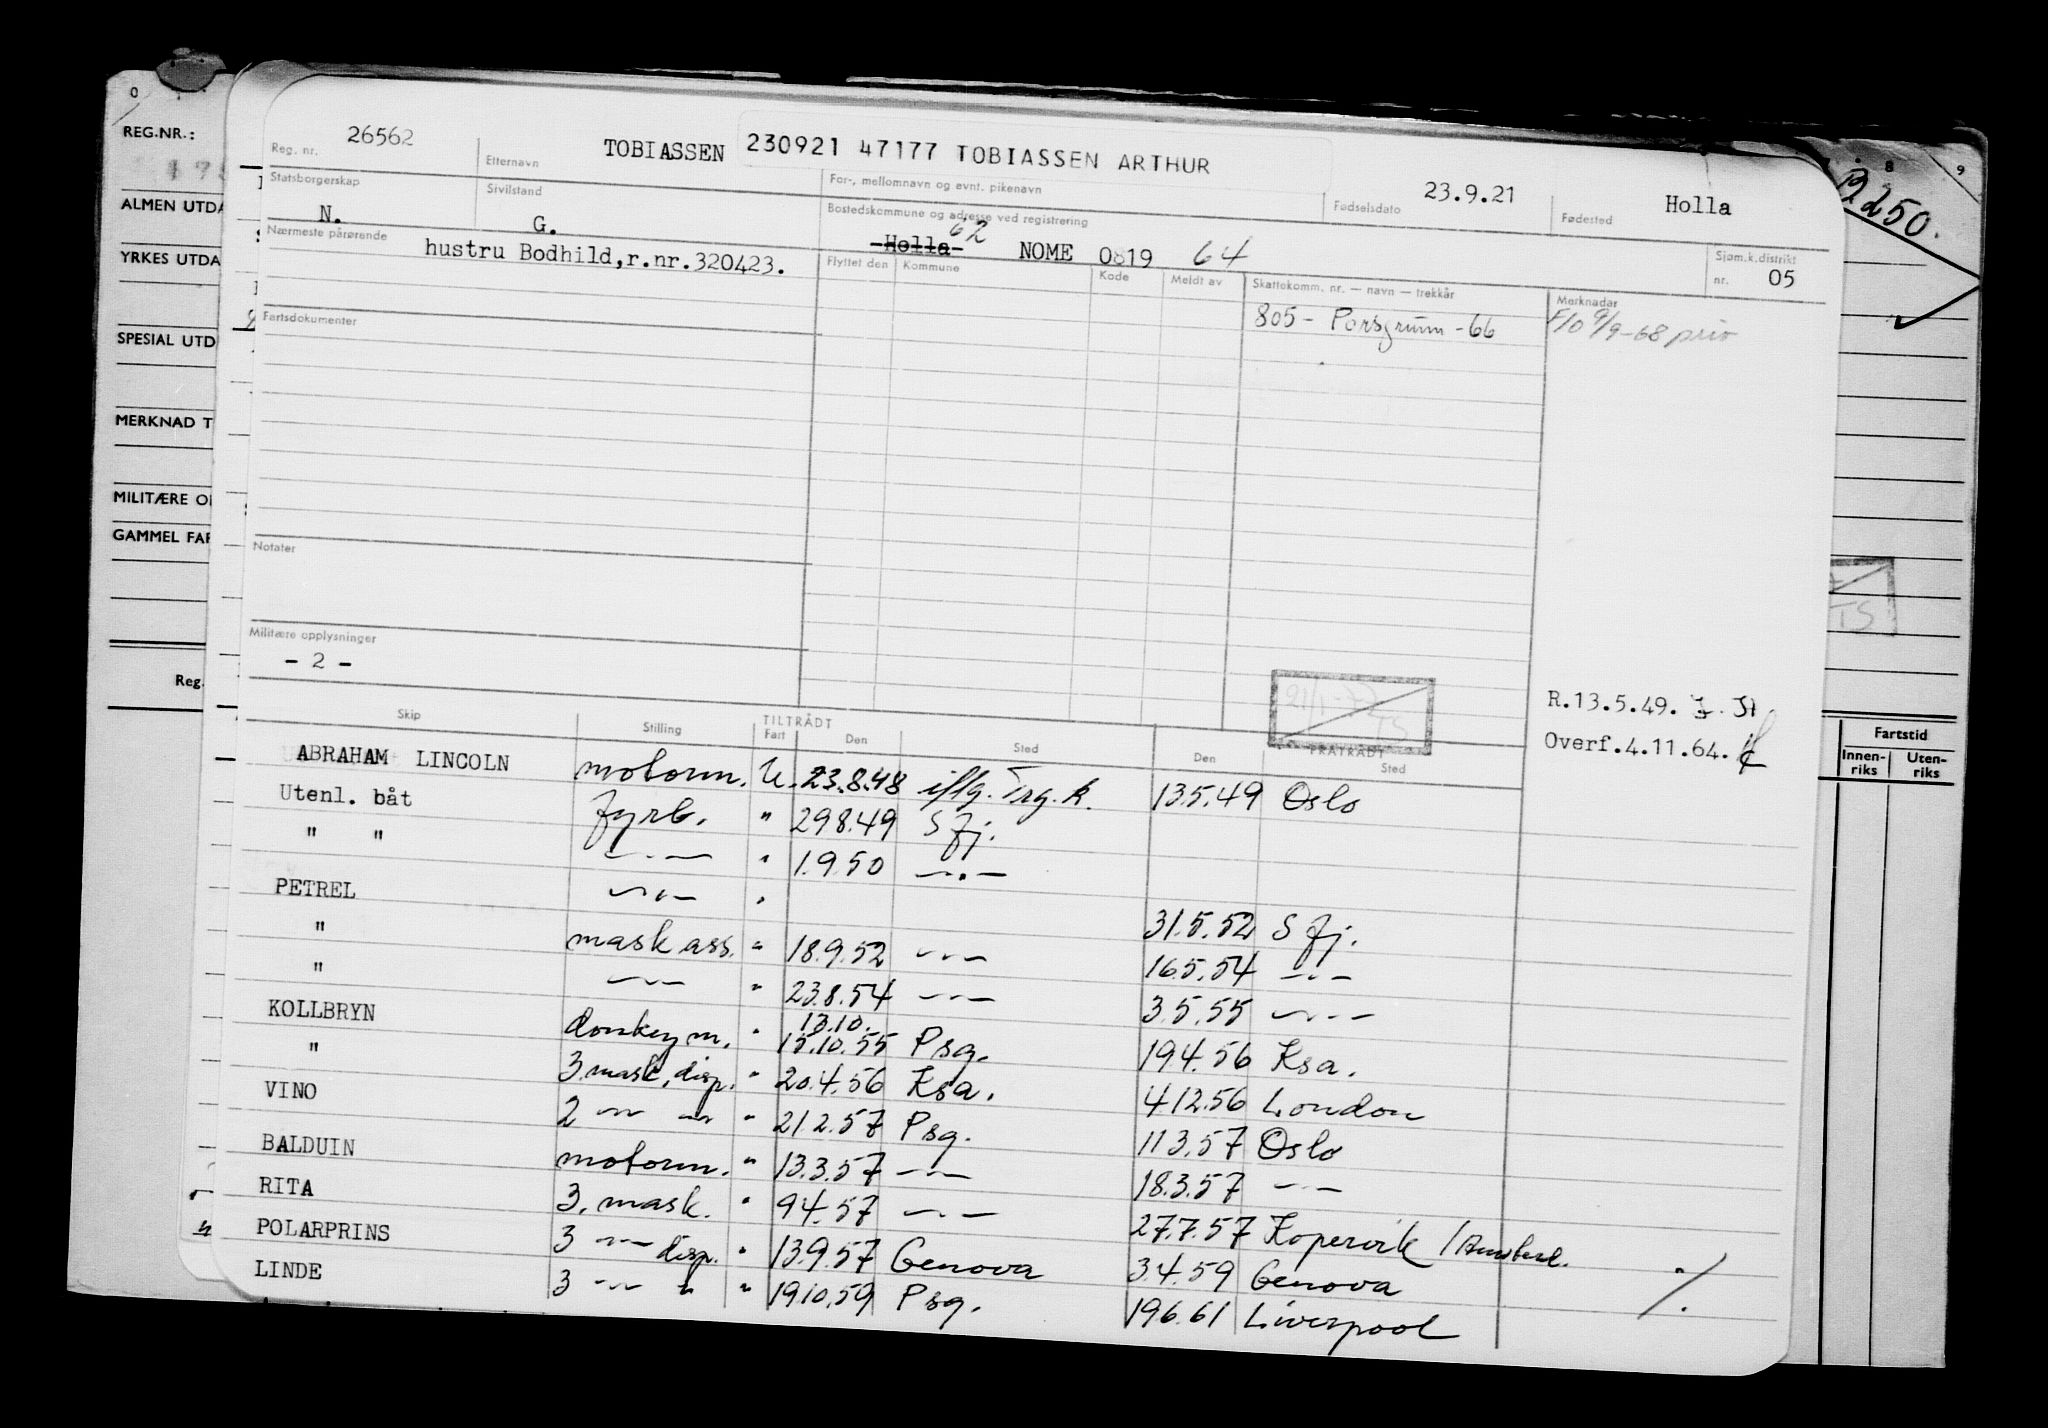 REG.NR.:
ALMEN UTDA
YRKES UTDA
SPESIAL UTD
MERKNAD T
MILITÆRE O
GAMMEL FAR
Reg.
Reg. nr. 26562
Etternavn TOBIASSEN 230921 47177 TOBIASSEN ARTHUR
For-, mellomnavn og evnt. pikenavn
Fødselsdato 23.9.21
Fødested Holla
Statsborgerskap N.
Sivilstand G.
Bostedskommune og adresse ved registrering
Holla 62 NOME 0819 64
Sjøm.k.distrikt nr. 05
Nærmeste pårørende
hustru Bodhild,r.nr.320423.
Flyttet den Kommune Kode Meldt av
Skattekomm. nr. — navn — trekkår
805 - Porsgrunn -66
Merknader
F/O 9/9-68 priv
Fartsdokumenter
Notater
Militære opplysninger
- 2 -
R.13.5.49.
Overf.4.11.64.
Skip Stilling TILTRÅDT Fart Den Sted FRATRÅDT Den Sted
ABRAHAM LINCOLN motorm. U. 23.8.48 iflg. Trg. k. 13.5.49 Oslo
Utenl. båt fyrb. " 29.8.49 S fj.
" " —"— " 1.9.50 —"—
PETREL —"— " 31.5.52 S fj.
" mask ass. " 18.9.52 —"— 16.5.54 —"—
" —"— " 23.8.54 —"— 3.5.55 —"—
KOLLBRYN donkeym. " 13.10. 15.10.55 Psg. 19.4.56 Ksa.
" 3.mask.disp. " 20.4.56 Ksa. 4.12.56 London
VINO 2 —"— —"— " 21.2.57 Psg. 11.3.57 Oslo
BALDUIN motorm. " 13.3.57 —"— 18.3.57 —"—
RITA 3. mask. " 9.4.57 —"— 27.7.57 Kopervik
POLARPRINS 3 —"— disp. " 13.9.57 Genova 3.4.59 Genova
LINDE 3 —"— " " 19.10.59 Psg. 19.6.61 Liverpool
8 9
2250.
Fartstid
Innen-riks Uten-riks
TS